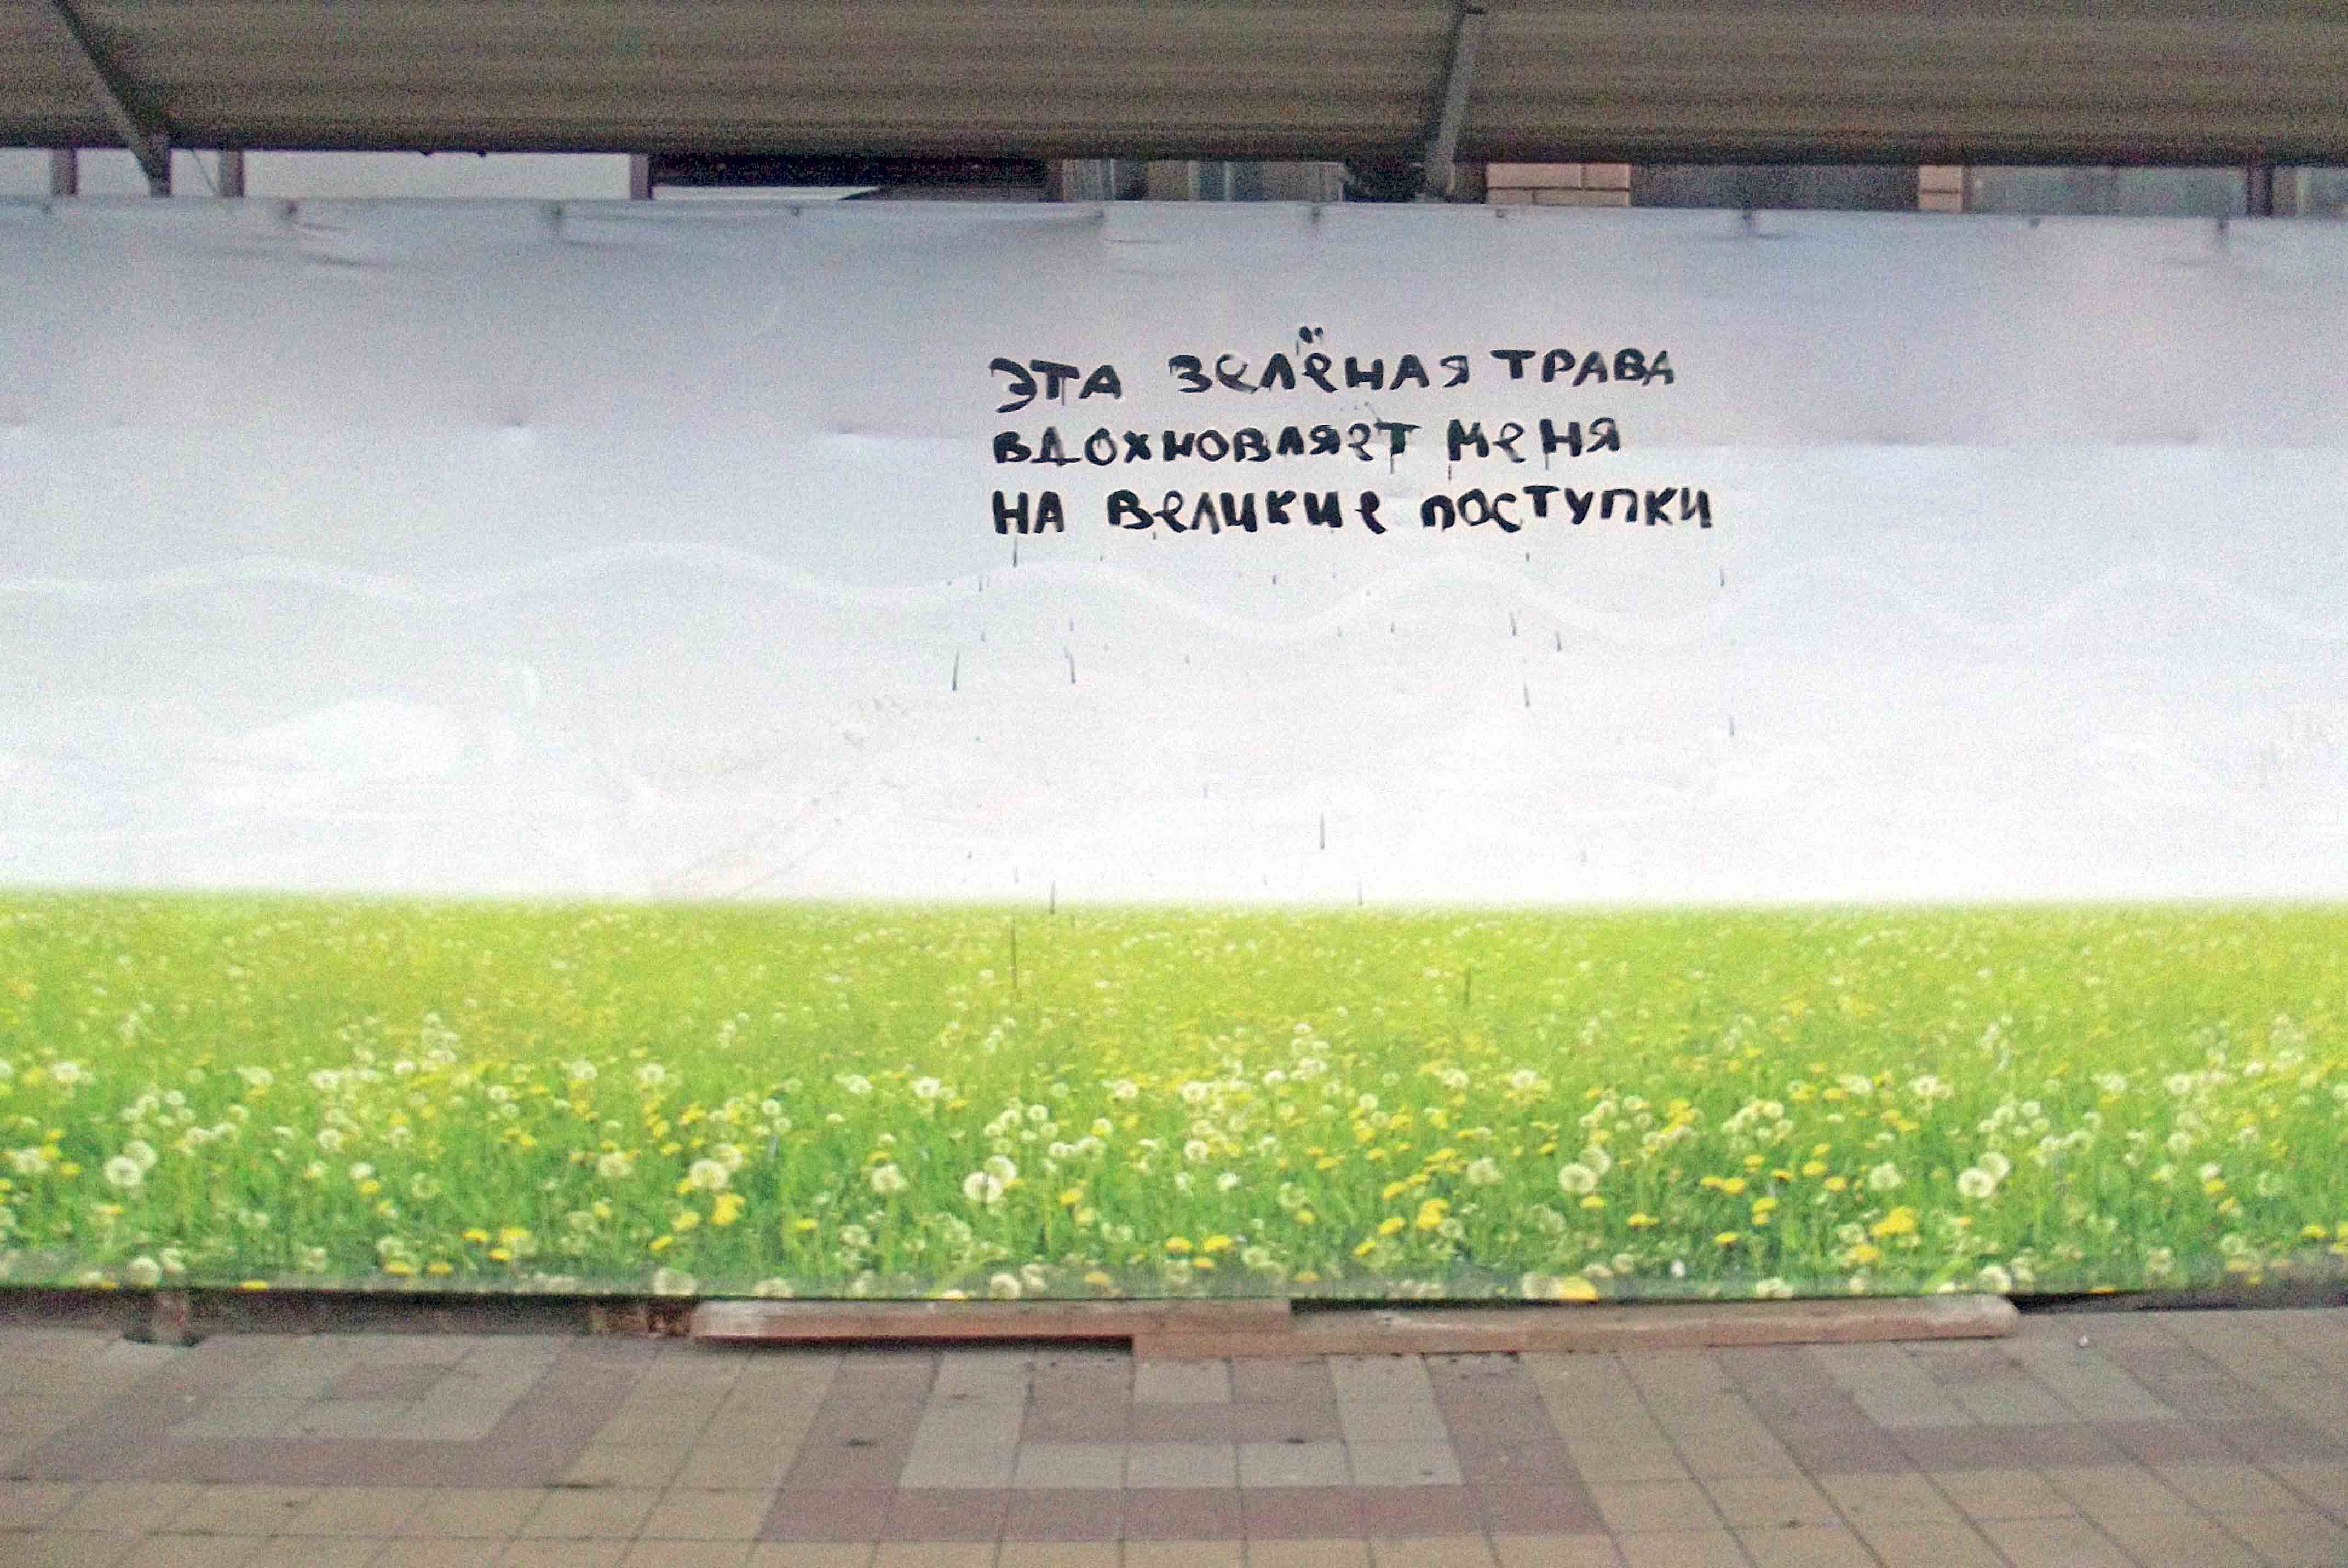 ЭТА ЗеЛёНАЯ ТРАВА
ВДОХНОВЛЯеТ МеНЯ
НА ВеЛИКИе ПОСТУПКИ